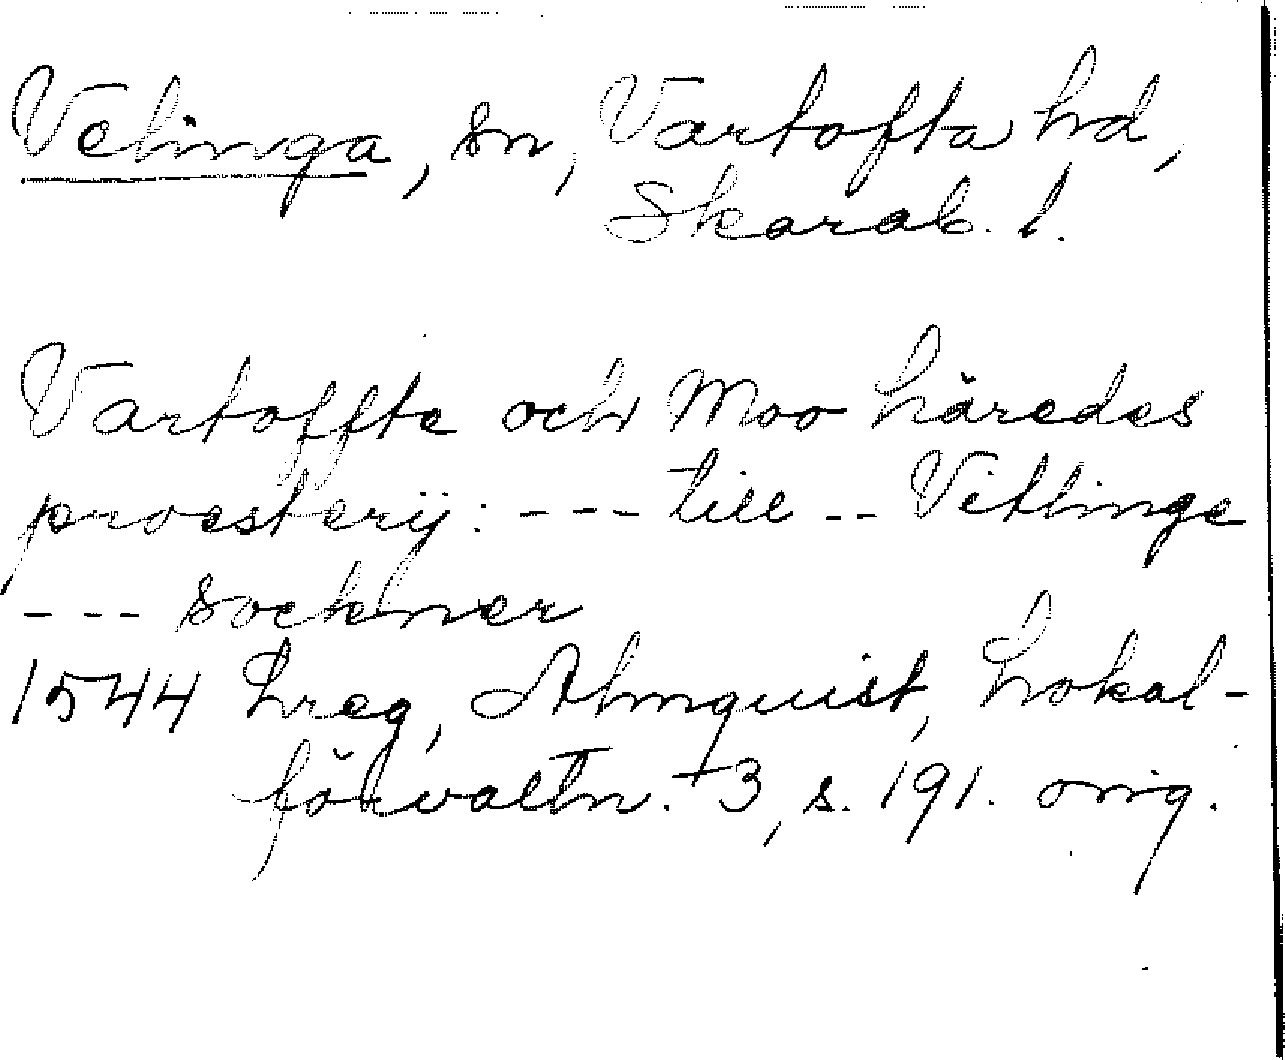 Velinga, sn, Vartofta hd,
Skarab. l.
Vartoffte och Moo häredes
proesterij: --- till -- Vetlinge
--- sockner
1544 Lreg, Almquist, Lokal-
förvaltn. 3, s. 191. orig.